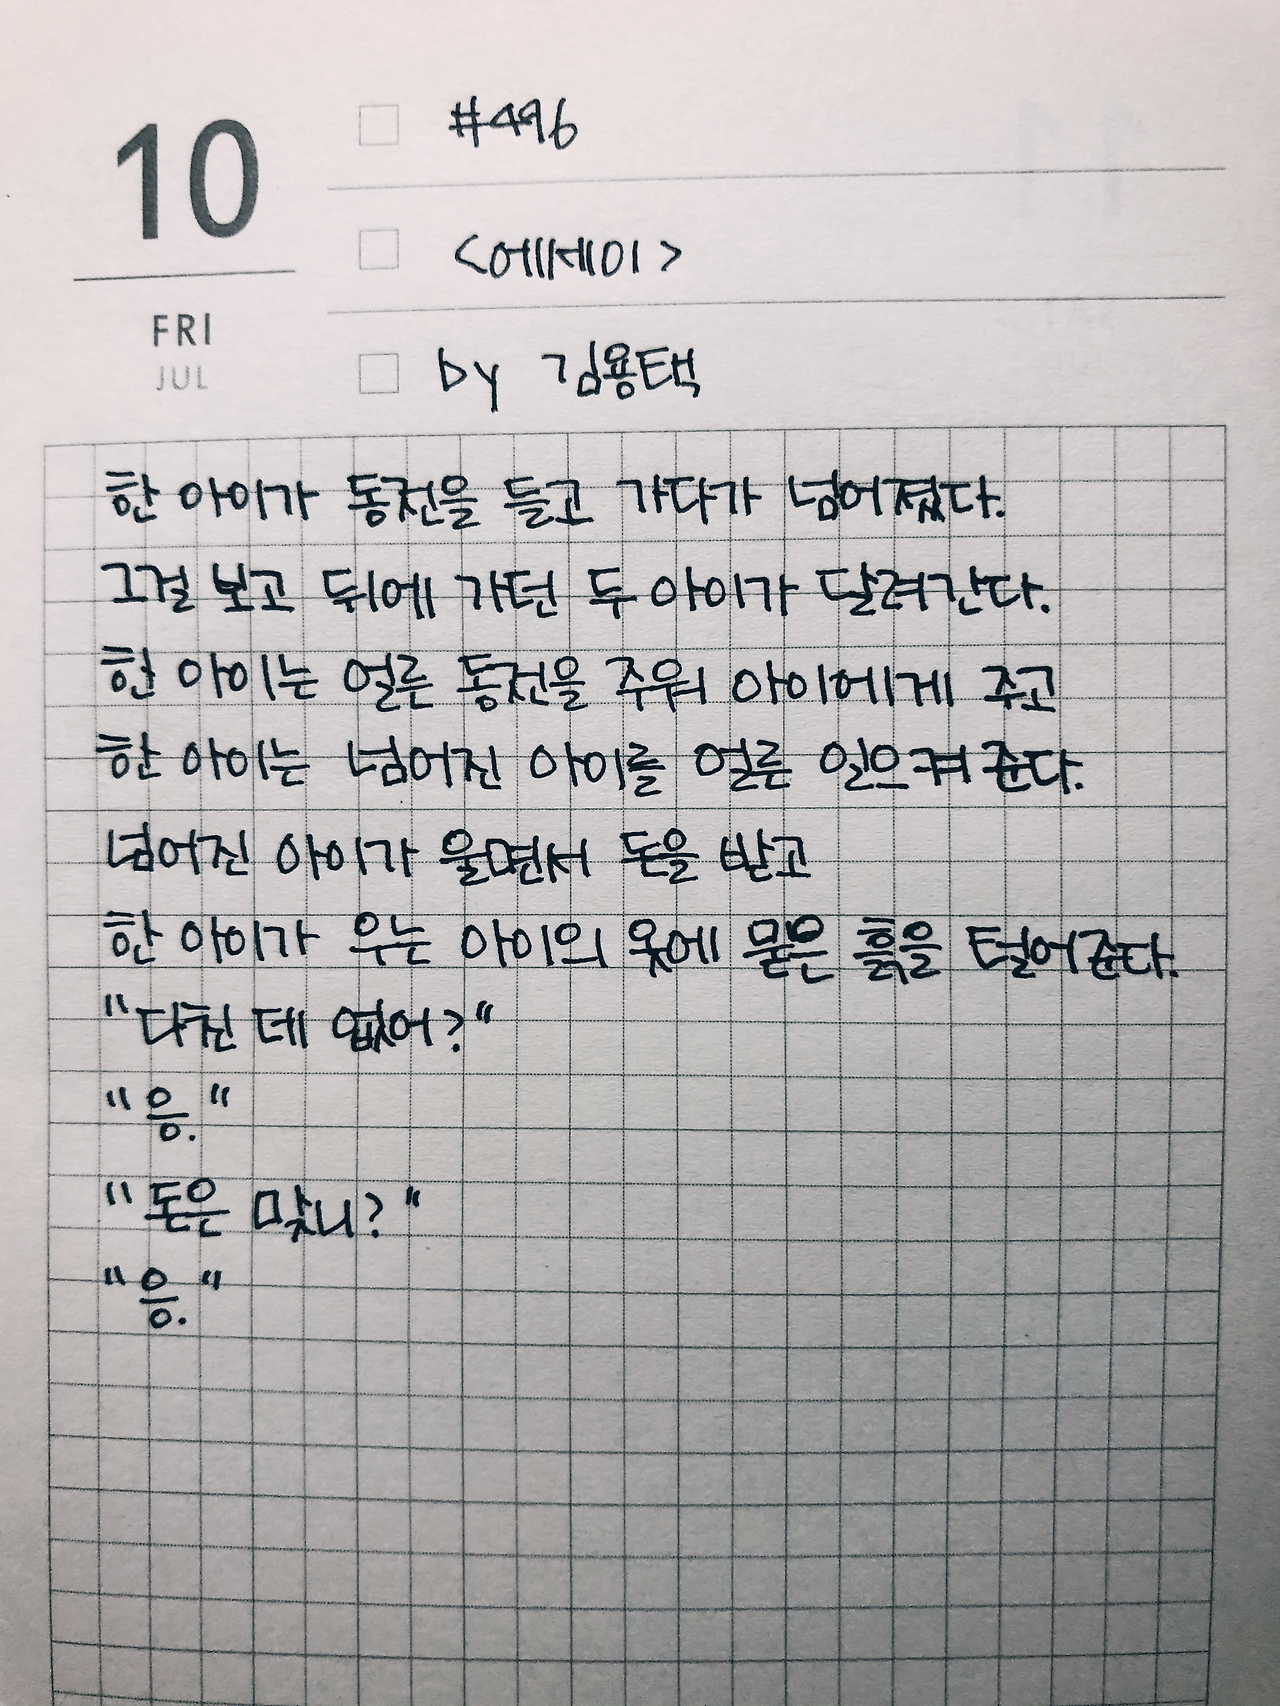 10
FRI
JUL
#496
<에세이>
by 김용택
한 아이가 동전을 들고 가다가 넘어졌다.
그걸 보고 뒤에 가던 두 아이가 달려간다.
한 아이는 얼른 동전을 주워 아이에게 주고
한 아이는 넘어진 아이를 얼른 일으켜 준다.
넘어진 아이가 울면서 돈을 받고
한 아이가 우는 아이의 옷에 묻은 흙을 털어준다.
"다친 데 없어?"
"응."
"돈은 맞니?"
"응."